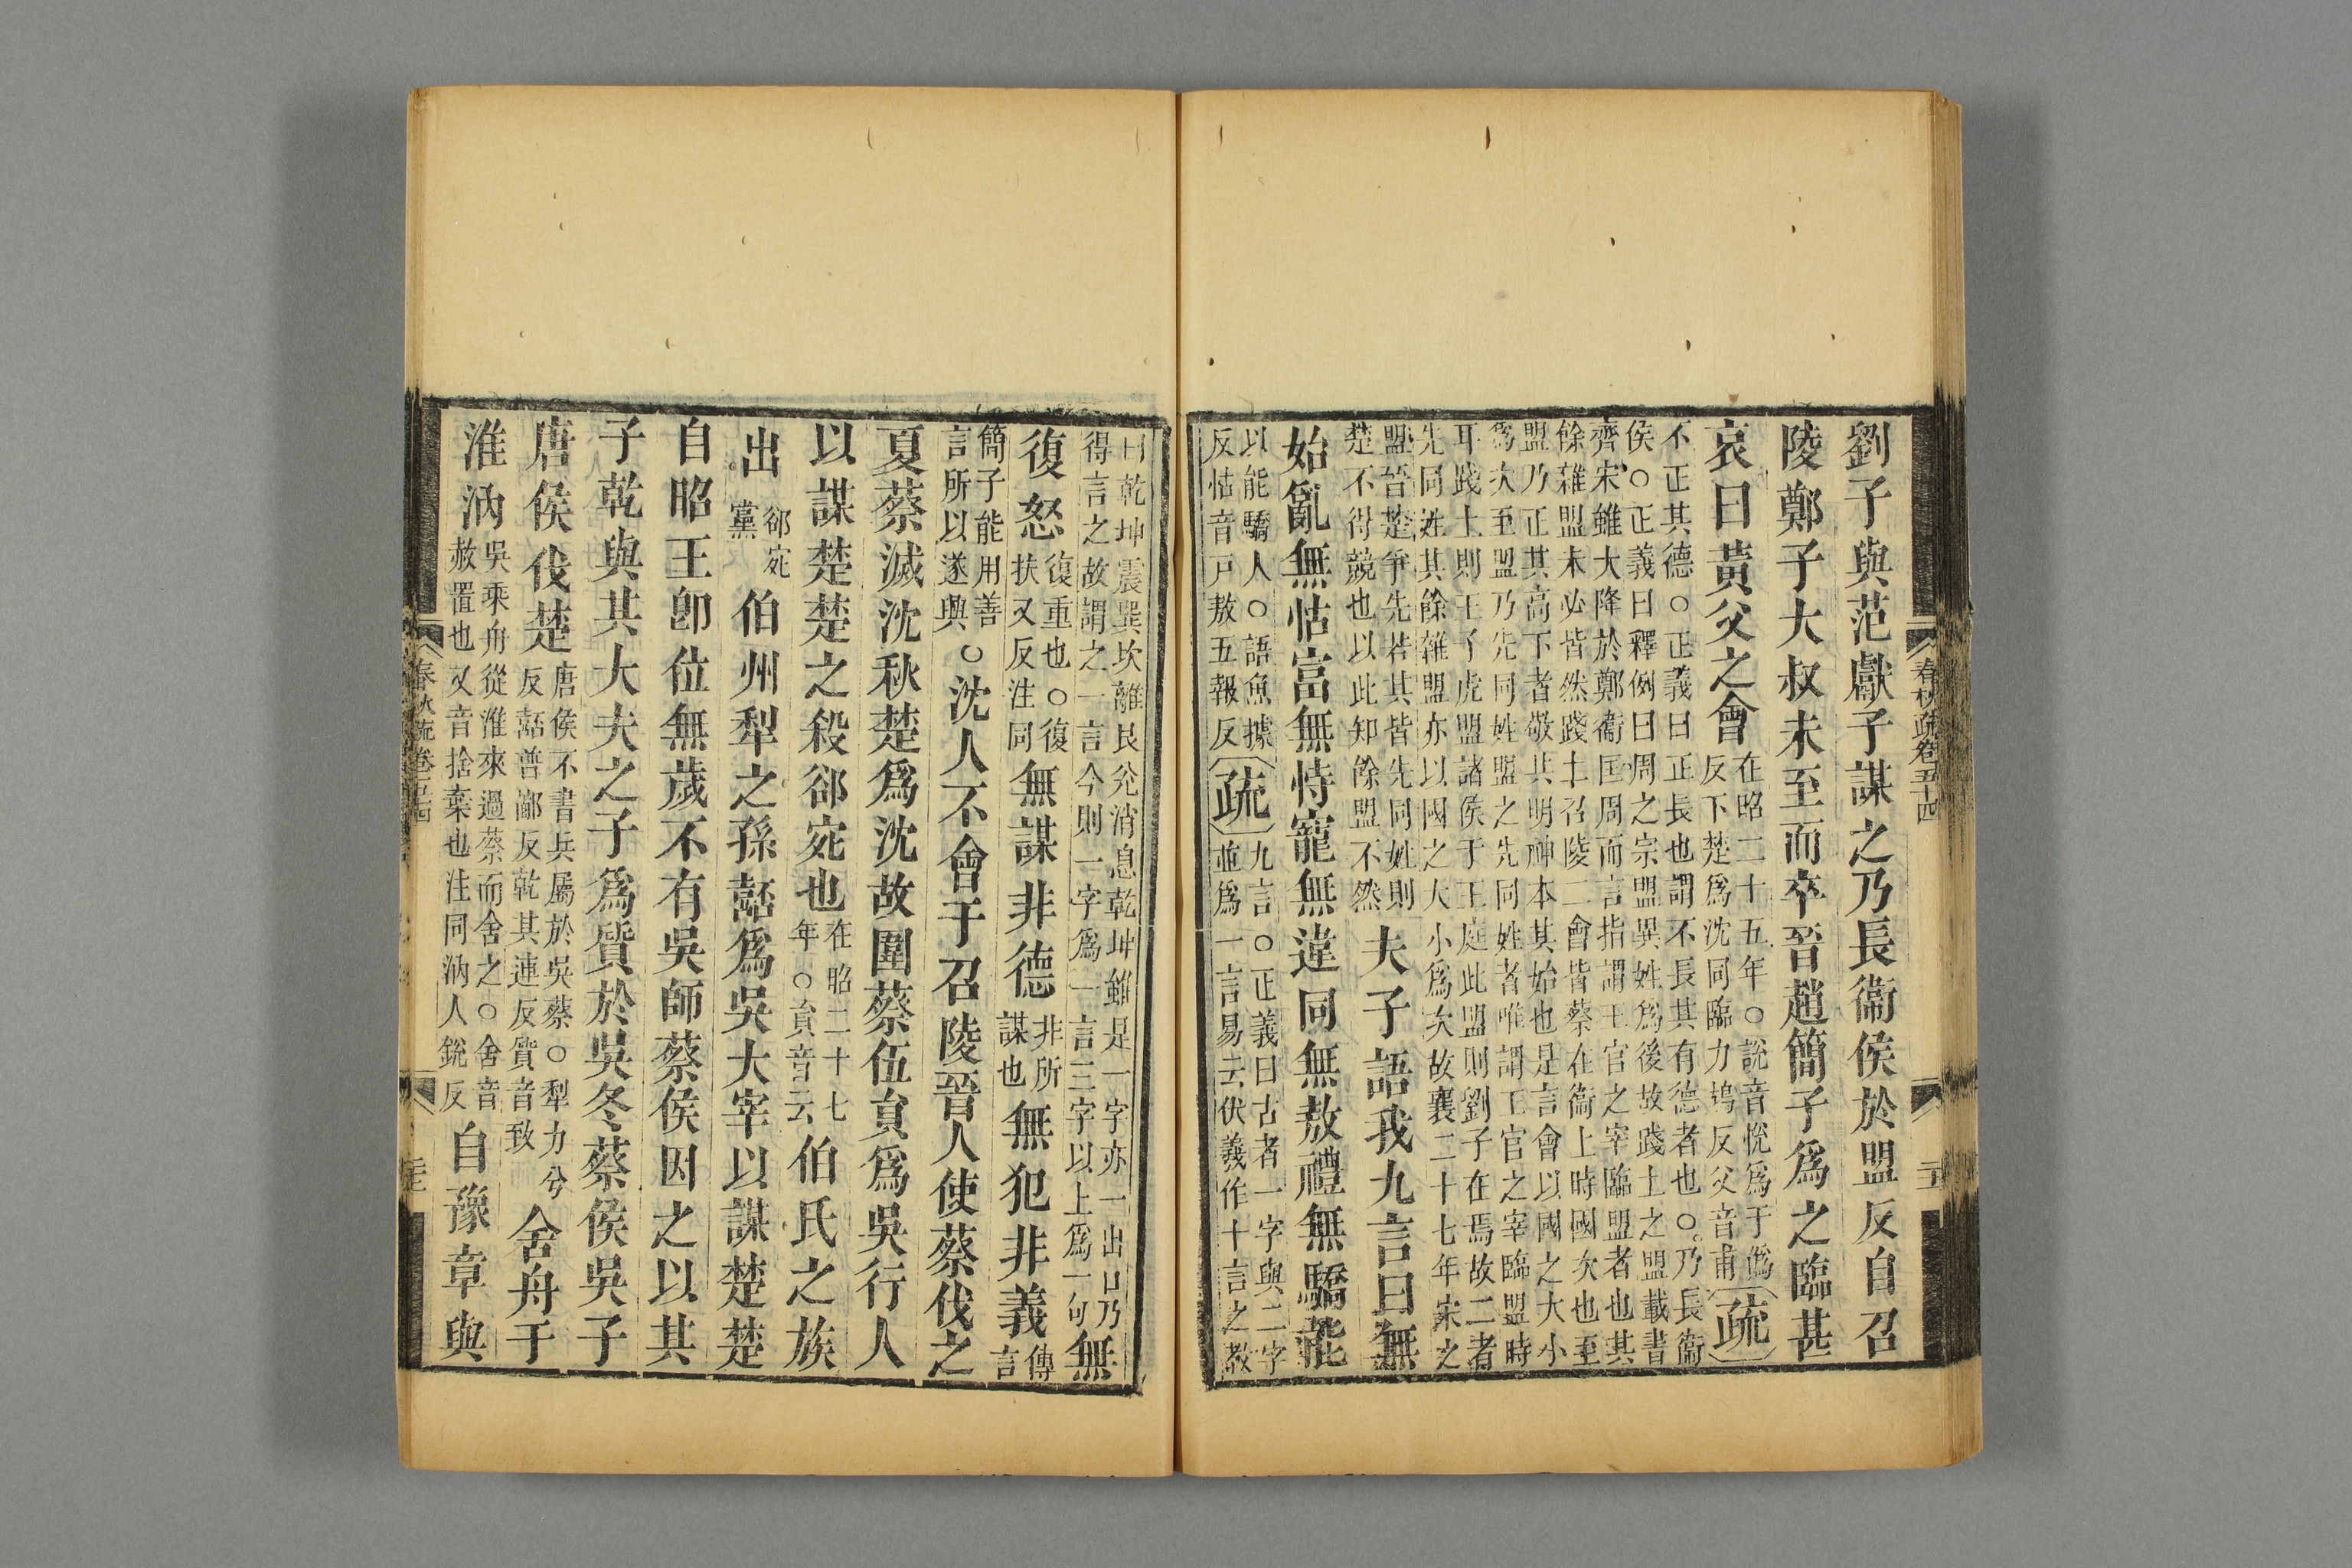 春秋疏卷五十四
劉子與范獻子謀之乃長衞侯於盟反自召
陵鄭子大叔未至而卒晉趙簡子爲之臨甚
哀曰黃父之會在昭二十五年○說音悅爲于僞
反下楚爲沈同臨力鴆反父音甫疏
不正其德○正義曰正長也謂不長其有德者也○乃長衞
侯○正義曰釋例曰周之宗盟異姓爲後故踐土之盟載書
齊宋雖大降於鄭衞匡周而言指謂王官之宰臨盟者也其
餘雜盟未必皆然踐土召陵二會皆蔡在衞上時國次也至
盟乃正其高下者敬共明神本其始也是言會以國之大小
爲次至盟乃先同姓盟之先同姓者唯謂王官之宰臨盟時
耳踐土則王子虎盟諸侯于王庭此盟則劉子在焉故二者
先同姓其餘雜盟亦以國之大小爲次故襄二十七年宋之
盟晉楚爭先若其皆先同姓則
楚不得競也以此知餘盟不然夫子語我九言曰無
始亂無怙富無恃寵無違同無敖禮無驕能
以能驕人○語魚據
反怙音戸敖五報反疏九言○正義曰古者一字與二字
並爲一言易云伏羲作十言之教
曰乾坤震巽坎離艮兌消息乾坤雖是一字亦一出口乃
得言之故謂之一言今則一字爲一言三字以上爲一句無
復怒復重也○復
扶又反注同無謀非德非所
謀也無犯非義傳
言
簡子能用善
言所以遂興○沈人不會于召陵晉人使蔡伐之
夏蔡滅沈秋楚爲沈故圍蔡伍員爲吳行人
以謀楚楚之殺郤宛也在昭二十七
年○員音云伯氏之族
出郤宛
黨伯州犁之孫嚭爲吳大宰以謀楚楚
自昭王卽位無歲不有吳師蔡侯因之以其
子乾與其大夫之子爲質於吳冬蔡侯吳子
唐侯伐楚唐侯不書兵屬於吳蔡○犁力兮
反嚭普鄙反乾其連反質音致舍舟于
淮汭吳乘舟從淮來過蔡而舍之○舍音
赦置也又音捨棄也注同汭人銳反自豫章與
春秋疏卷五十四